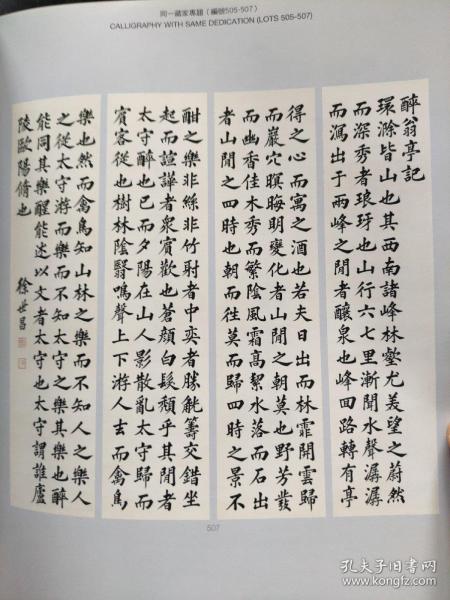 同一藏家專題（編號505-507）
CALLIGRAPHY WITH SAME DEDICATION (LOTS 505-507)
醉翁亭記
環滁皆山也其西南諸峰林壑尤美望之蔚然
而深秀者琅玡也山行六七里漸聞水聲潺潺
而瀉出于兩峰之間者釀泉也峰回路轉有亭
得之心而寓之酒也若夫日出而林霏開雲歸
而巖穴暝晦明變化者山間之朝莫也野芳發
而幽香佳木秀而繁陰風霜高絜水落而石出
者山間之四時也朝而往莫而歸四時之景不
酣之樂非絲非竹射者中奕者勝觥籌交錯坐
起而諠譁者眾賓歡也蒼顏白髮頹乎其間者
太守醉也已而夕陽在山人影散亂太守歸而
賓客從也樹林陰翳鳴聲上下游人去而禽鳥
樂也然而禽鳥知山林之樂而不知人之樂人
之從太守游而樂而不知太守之樂其樂也醉
能同其樂醒能述以文者太守也太守謂誰廬
陵歐陽脩也
徐世昌
507
孔夫子旧书网
www.kongfz.com